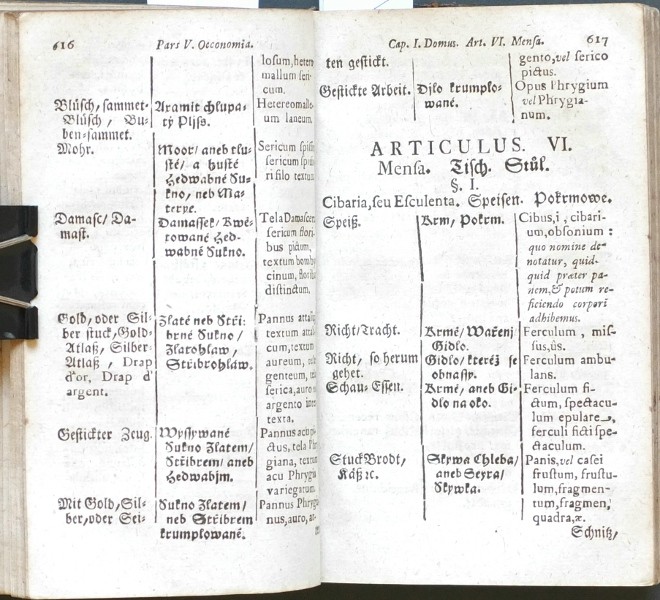 616 Pars V. Oeconomia.
losum, heter
mallum seri-
cum.
Blüsch, sammet-
Blüsch, Bu-
ben-sammet.
Aramit chlupa-
tý Plyss.
Hetereomallo-
um laneum.
Mohr.
Moor/ aneb tlu-
sté/ a husté
Hedwabné Su-
kno, neb Ma-
terye.
Sericum spiss
sericum
risilo textum
Damasc/ Da-
mast.
Damassek/ Kwě-
towané Hed-
wabné Sukno.
Tela Damascen
sericum flori-
bus pictum,
textum bomby
cinum, flori
distinctum.
Gold, oder Sil-
ber stuck, Gold-
Atlaß, Silber-
Atlaß, Drap
d'or, Drap d'
argent.
Zlaté neb Stři-
brné Sukno/
Zlatohlaw,
Střibrohlaw.
Pannus attal
textum atta
cum, textum
aureum,
genteum,
serica, auro
argento inter
texta.
Gestickter Zeug.
Wyssywané
Sukno Zlatem/
Střibrem/ aneb
Hedwabjm.
Pannus acu pi
ctus, tela Ph
giana, textum
acu Phrygia
variegatum
Mit Gold, Sil-
ber, oder Sei-
Sukno Zlatem/
neb Střibrem
krumplowané.
Pannus Phryg
nus, auro, ar-
Cap. I. Domus. Art. VI. Mensa. 617
ten gestickt.
gento, vel serico
pictus.
Gestickte Arbeit.
Djlo krumplo-
wané.
Opus Phrygium
vel Phrygia-
num.
ARTICULUS. VI.
Mensa. Tisch. Stůl.
§. I.
Cibaria, seu Esculenta. Speisen. Pokrmowe.
Speiß.
Krm/ Pokrm.
Cibus, i, cibari-
um, obsonium:
quo nomine de-
notatur, quid-
quid præter pa-
nem, & potum re-
ficiendo corpori
adhibemus.
Richt/Tracht.
Krmě/ Wařenj
Gidlo.
Ferculum, mis-
sus, ûs.
Richt, so herum
gehet.
Gidlo/ kteréž se
obnassy.
Ferculum ambu-
lans.
Schau-Essen.
Krmě, aneb Gi-
dlo na oko.
Ferculum fi-
ctum, spectacu-
lum epulare,
ferculi ficti spe-
ctaculum.
Stuck Brodt,
Käß ꝛc.
Skywa Chleba/
aneb Seyra/
Skywka.
Panis, vel casei
frustum, frustu-
lum, fragmen-
tum, fragmen,
quadra, æ.
Schnitz,